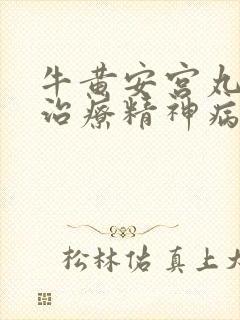 牛黄安宫丸
治療精神病
松林佑真上大